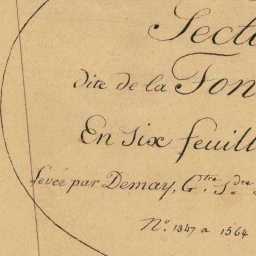 Secti
dite de la Fon
En Six feuill
Levée par Demay, G.tre S.dre
N.o 1347 a 1564